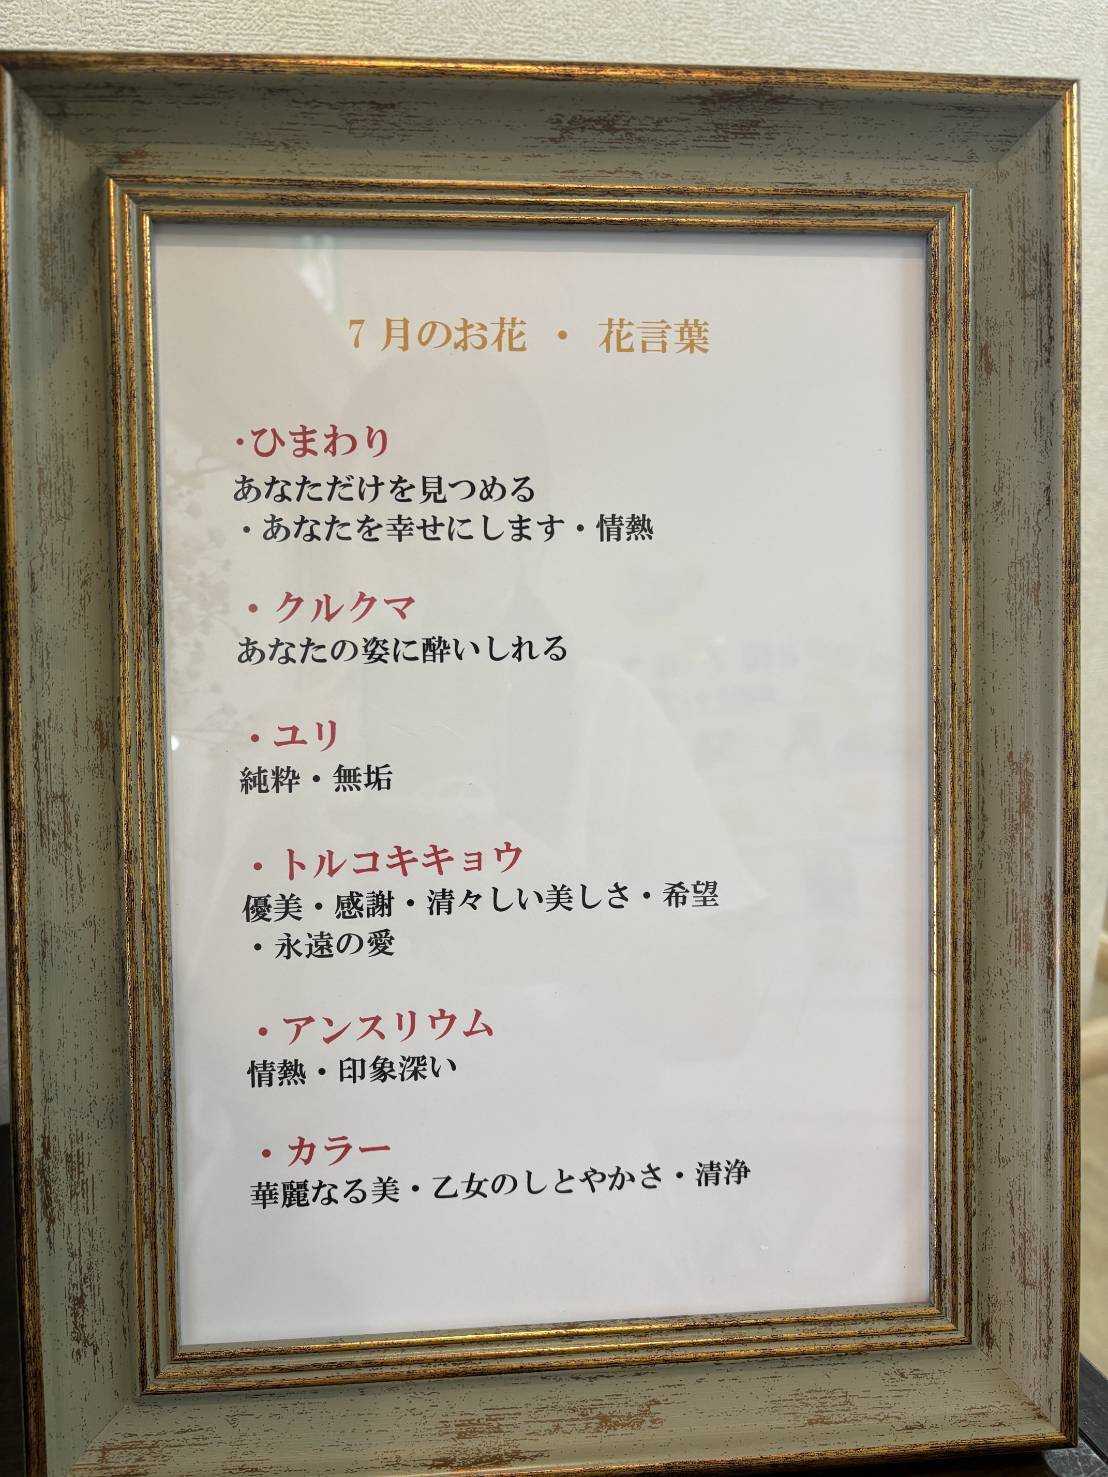 7月のお花 ・ 花言葉
・ひまわり
あなただけを見つめる
・あなたを幸せにします・情熱
・クルクマ
あなたの姿に酔いしれる
・ユリ
純粋・無垢
・トルコキキョウ
優美・感謝・清々しい美しさ・希望
・永遠の愛
・アンスリウム
情熱・印象深い
・カラー
華麗なる美・乙女のしとやかさ・清浄